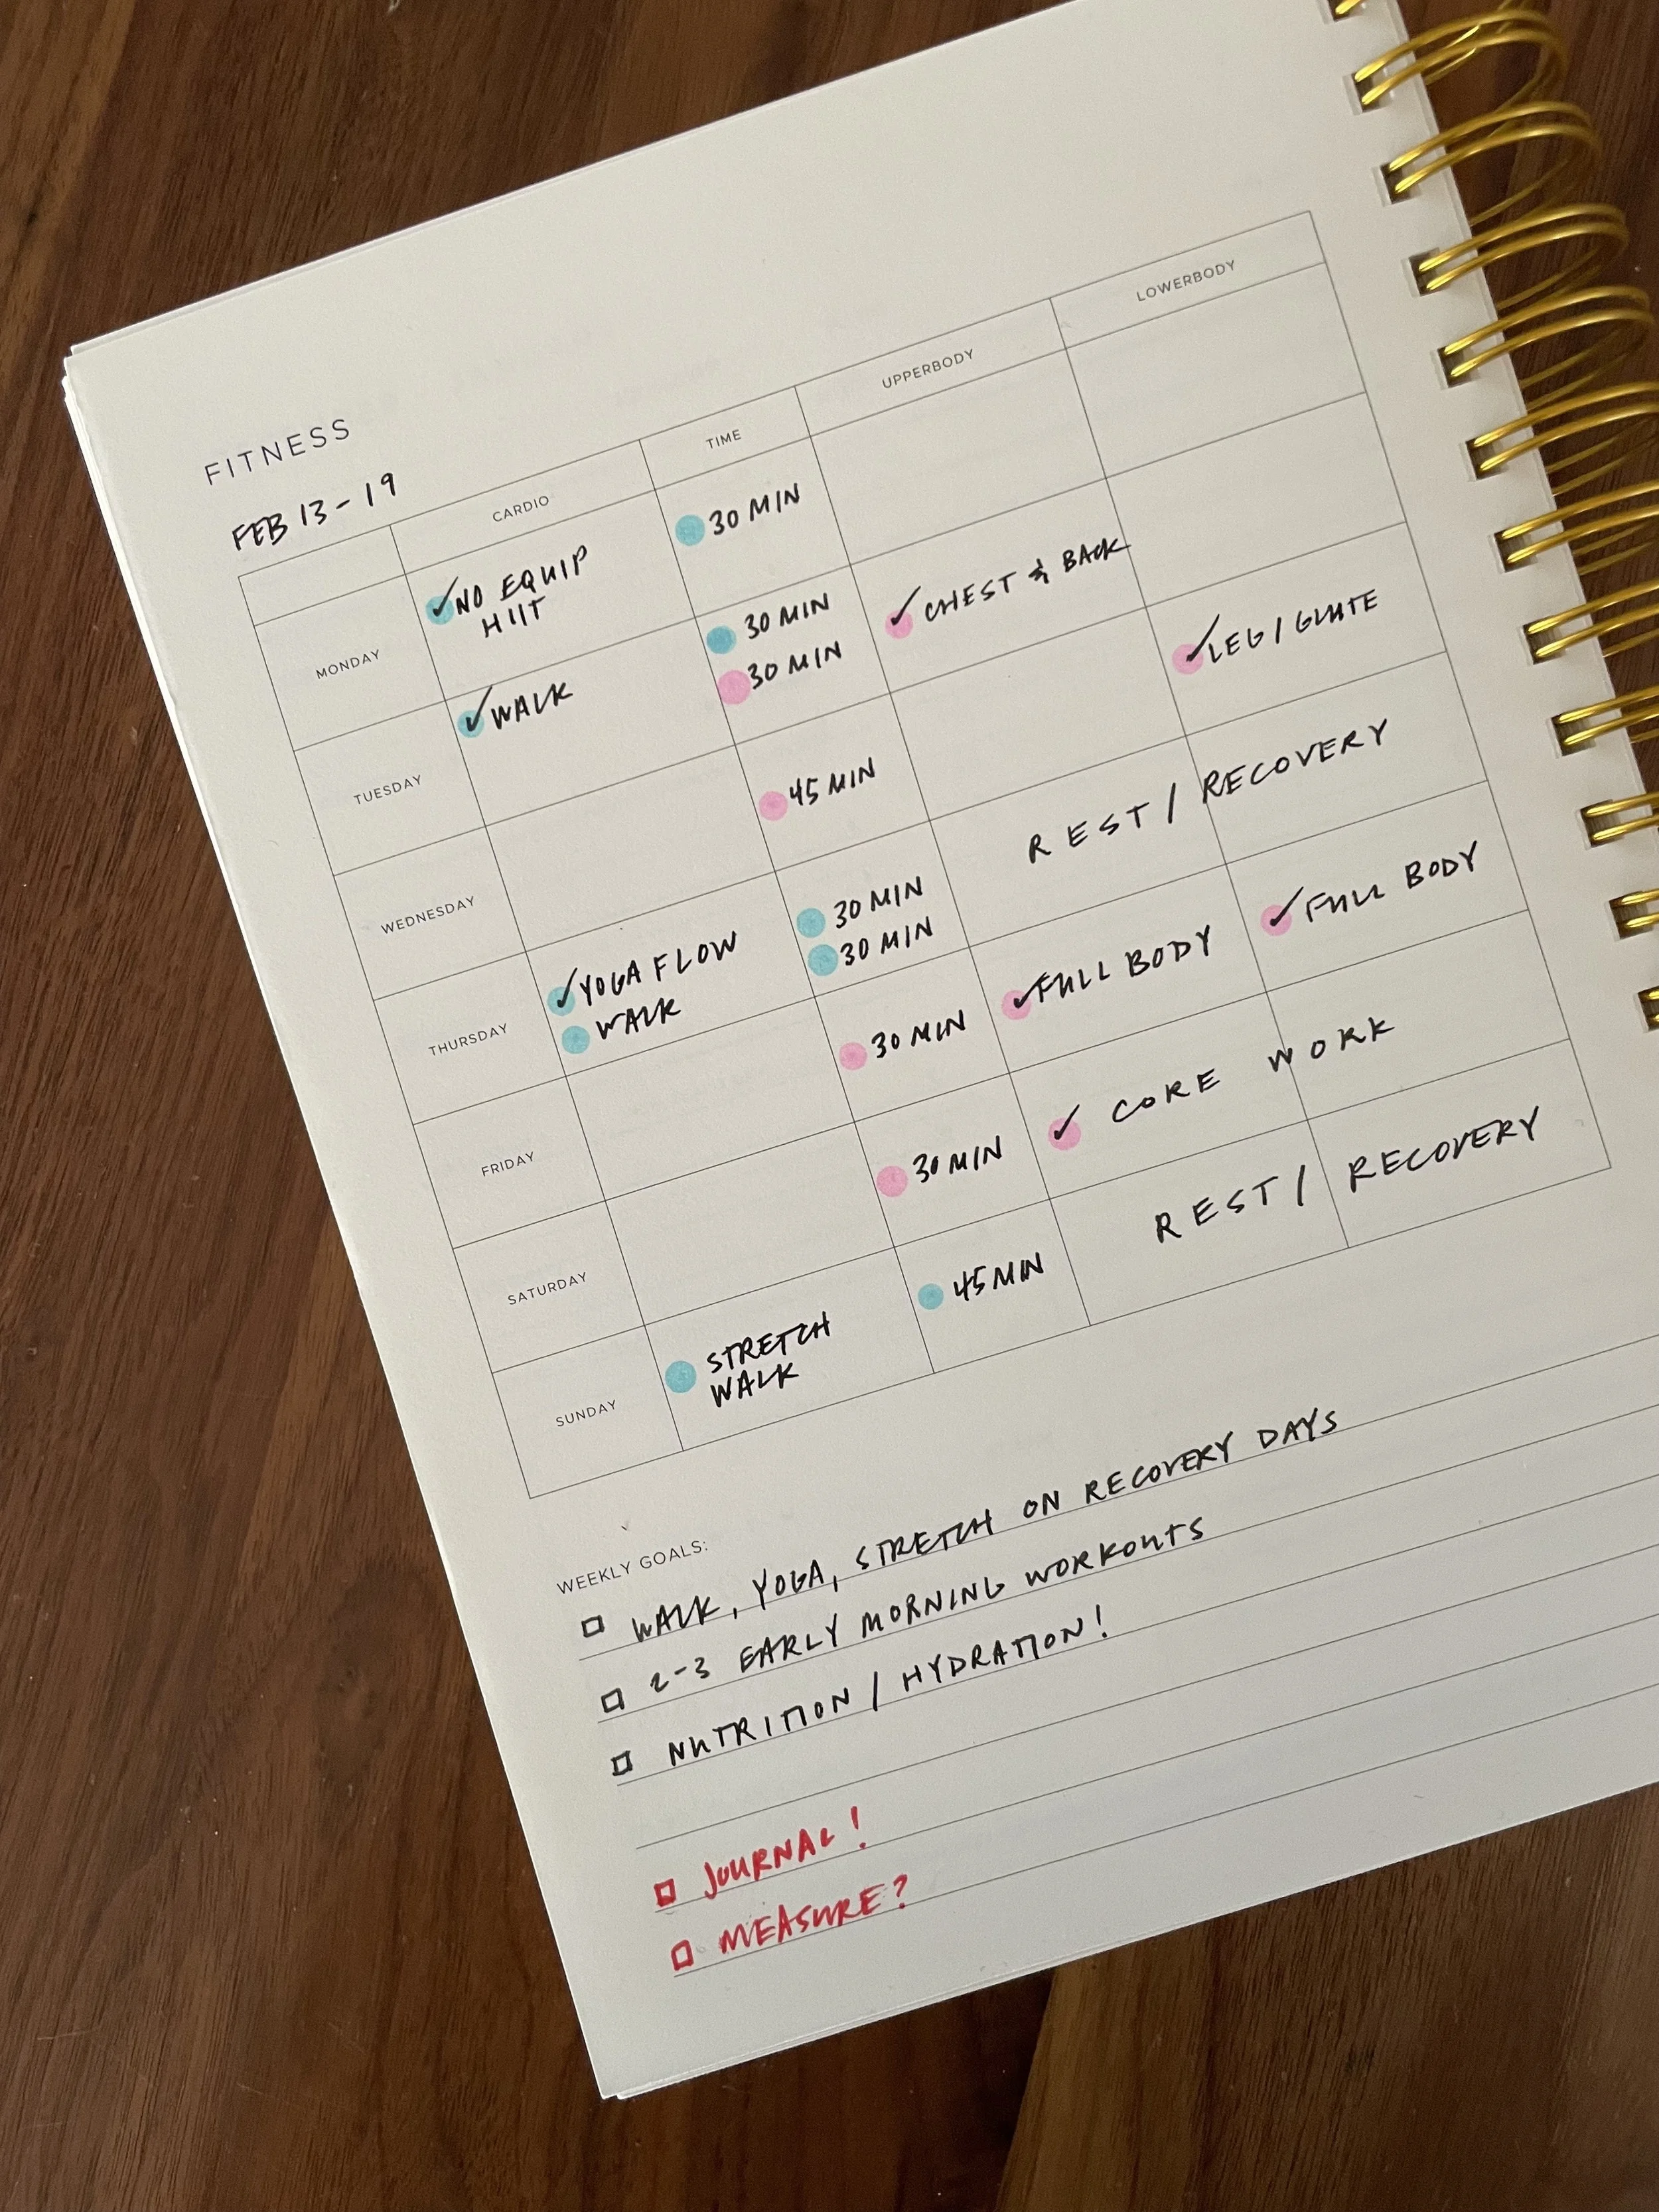 FITNESS
FEB 13-19
CARDIO TIME UPPERBODY LOWERBODY
MONDAY ✓ NO EQUIP 30 MIN
HIIT
TUESDAY ✓ WALK 30 MIN ✓ CHEST & BACK
30 MIN
WEDNESDAY 45 MIN ✓ LEG / GLUTE
THURSDAY ✓ YOGA FLOW 30 MIN REST / RECOVERY
WALK 30 MIN
FRIDAY 30 MIN ✓ FULL BODY ✓ FULL BODY
SATURDAY 30 MIN ✓ CORE WORK
SUNDAY STRETCH 45 MIN REST / RECOVERY
WALK
WEEKLY GOALS:
WALK, YOGA, STRETCH ON RECOVERY DAYS
2-3 EARLY MORNING WORKOUTS
NUTRITION / HYDRATION!
JOURNAL!
MEASURE?